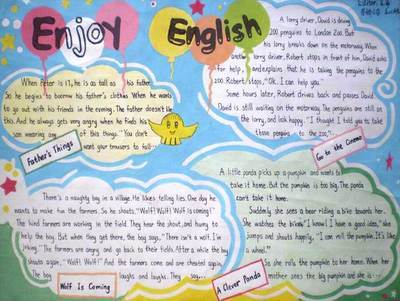 Enjoy English
When Peter is 17, he is as tall as his father.
So he begins to borrow his father's clothes When he wants
to go out with his friends in the evening. The father doesn't like
this. And he always gets very angry when he finds his
son wearing any of this things. "You don't
want your trousers to fall
Father's Things
A lorry driver, David is driving
200 penguins to London Zoo. But
his lorry breaks down on the motorway. When
another lorry driver, Robert stops in front of him, David asks
for help, and explains that he is taking the penguins to the
zoo. Robert stops, "Ok. I can help you."
Some hours later, Robert drives back and passes David
David is still waiting on the motorway. The penguins are still on
the lorry, and look happy. "I thought I told you to take
those penguins to the zoo".
Go to the Cinema
There's a naughty boy in a village. He likes telling lies. One day he
wants to make fun the farmers. So he shouts, "Wolf! Wolf! Wolf is coming!"
The kind farmers are working in the field. They hear the shout, and hurry to
help the boy. But when they get there, the boy says, "There isn't a wolf. I'm
joking." The farmers are angry and go back to their fields. After a while the boy
shouts again, "Wolf! Wolf!" And the farmers come and are cheated again.
The boy laughs and laughs. They say
Wolf Is Coming
A little panda picks up a pumpkin and wants to
take it home. But the pumpkin is too big. The panda
can't take it home.
Suddenly she sees a bear riding a bike towards her.
She watches the bike. "I know! I have a good idea," she
jumps and shouts happily, "I can roll the pumpkin. It's like
a wheel."
So she rolls the pumpkin to her home. When her
mother sees the big pumpkin and she is
A Clever Panda